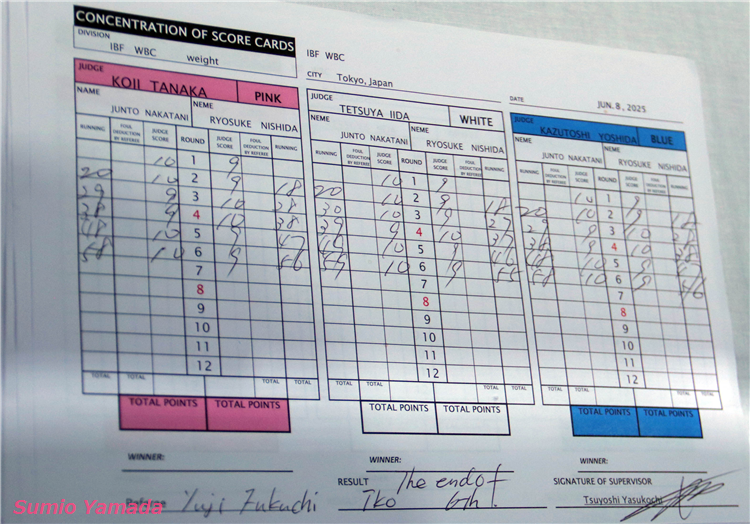 CONCENTRATION OF SCORE CARDS
DIVISION
IBF WBC weight
IBF WBC
CITY Tokyo, Japan
DATE JUN. 8, 2025
JUDGE
KOJI TANAKA PINK
NAME NEME
JUNTO NAKATANI RYOSUKE NISHIDA
RUNNING FOUL DEDUCTION BY REFEREE JUDGE SCORE ROUND JUDGE SCORE FOUL DEDUCTION BY REFEREE RUNNING
10 1 9
20 10 2 9 18
29 9 3 10 28
38 9 4 10 38
48 10 5 9 47
58 10 6 9 56
7
8
9
10
11
12
TOTAL TOTAL TOTAL TOTAL
TOTAL POINTS TOTAL POINTS
WINNER:
Referee Yuji Fukuchi
JUDGE
TETSUYA IIDA WHITE
NAME NEME
JUNTO NAKATANI RYOSUKE NISHIDA
RUNNING FOUL DEDUCTION BY REFEREE JUDGE SCORE ROUND JUDGE SCORE FOUL DEDUCTION BY REFEREE RUNNING
10 1 9
20 10 2 9 18
30 10 3 9 27
39 9 4 10 37
49 10 5 9 46
59 10 6 9 55
7
8
9
10
11
12
TOTAL TOTAL TOTAL TOTAL
TOTAL POINTS TOTAL POINTS
WINNER:
RESULT The end of
TKO 6th!
JUDGE
KAZUTOSHI YOSHIDA BLUE
NAME NEME
JUNTO NAKATANI RYOSUKE NISHIDA
RUNNING FOUL DEDUCTION BY REFEREE JUDGE SCORE ROUND JUDGE SCORE FOUL DEDUCTION BY REFEREE RUNNING
10 1 9
20 10 2 9 18
29 9 3 10 28
38 9 4 10 38
48 10 5 9 47
58 10 6 9 56
7
8
9
10
11
12
TOTAL TOTAL TOTAL TOTAL
TOTAL POINTS TOTAL POINTS
WINNER:
SIGNATURE OF SUPERVISOR
Tsuyoshi Yasukochi
Sumio Yamada